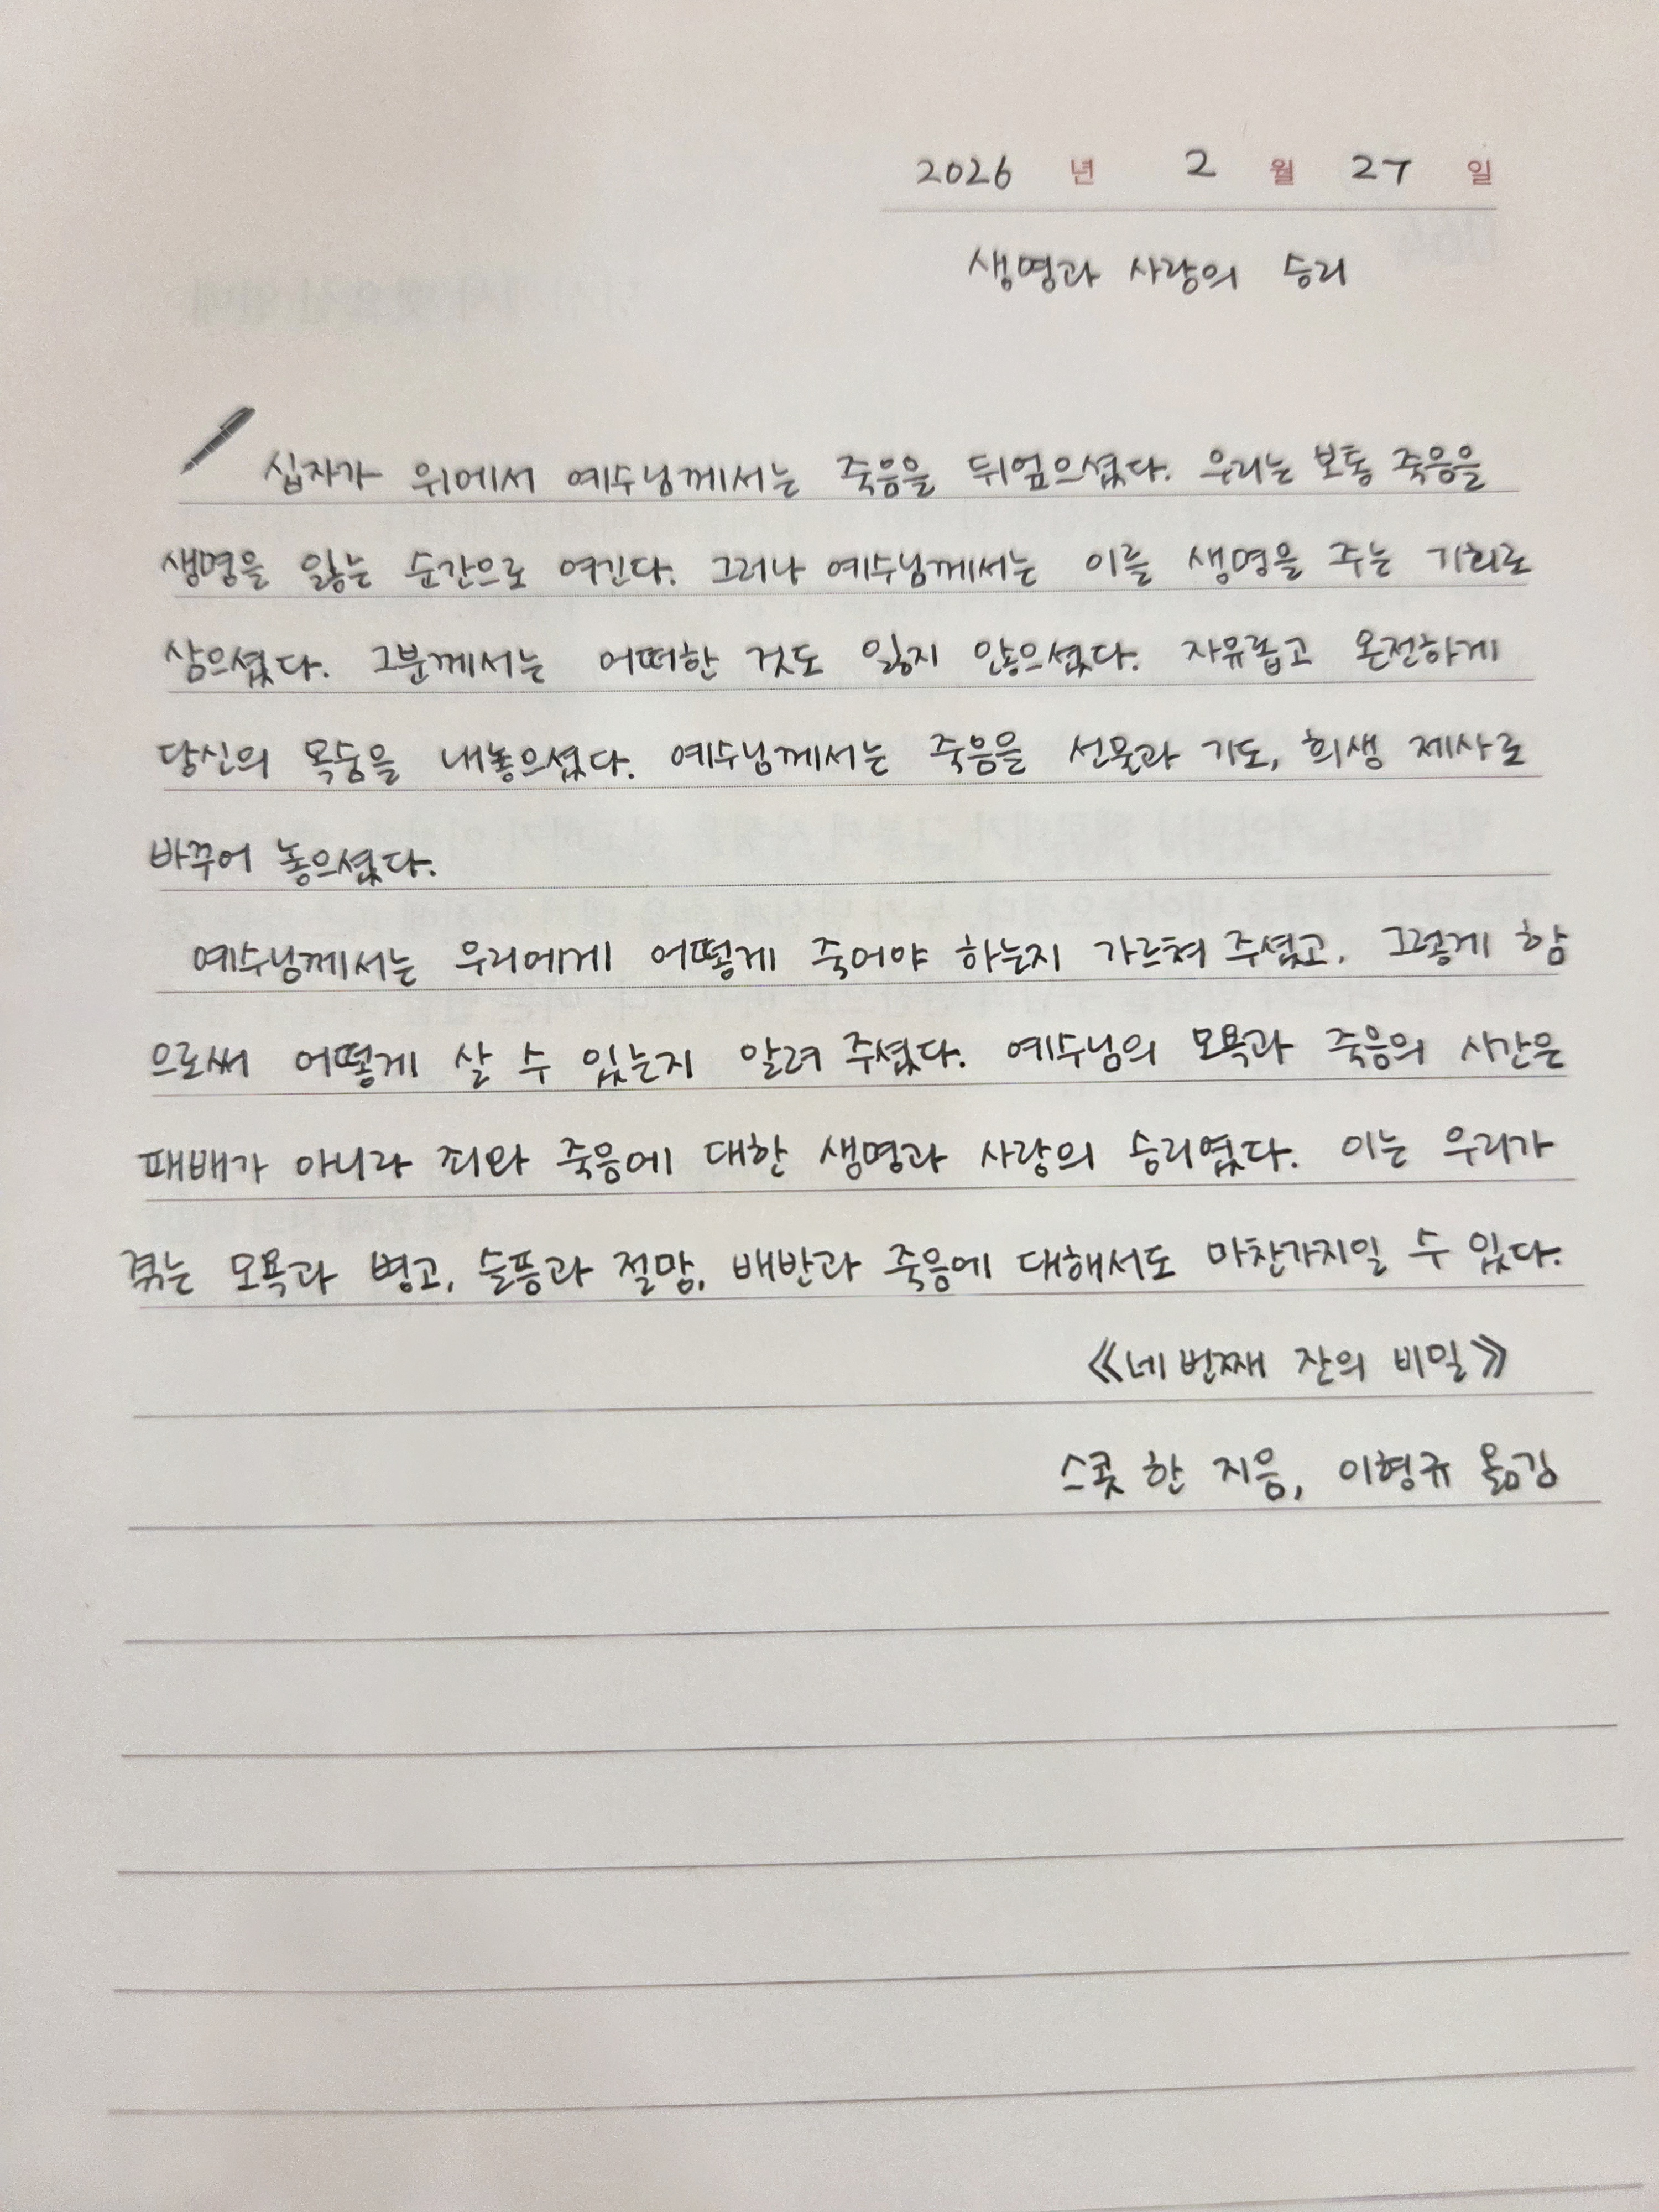 2026 년 2 월 27 일
생명과 사랑의 승리
십자가 위에서 예수님께서는 죽음을 뒤엎으셨다. 우리는 보통 죽음을
생명을 잃는 순간으로 여긴다. 그러나 예수님께서는 이를 생명을 주는 기회로
삼으셨다. 그분께서는 어떠한 것도 잃지 않으셨다. 자유롭고 온전하게
당신의 목숨을 내놓으셨다. 예수님께서는 죽음을 선물과 기도, 희생 제사로
바꾸어 놓으셨다.
예수님께서는 우리에게 어떻게 죽어야 하는지 가르쳐 주셨고, 그렇게 함
으로써 어떻게 살 수 있는지 알려 주셨다. 예수님의 모욕과 죽음의 시간은
패배가 아니라 죄와 죽음에 대한 생명과 사랑의 승리였다. 이는 우리가
겪는 모욕과 병고, 슬픔과 절망, 배반과 죽음에 대해서도 마찬가지일 수 있다.
《네 번째 잔의 비밀》
스콧 한 지음, 이형규 옮김